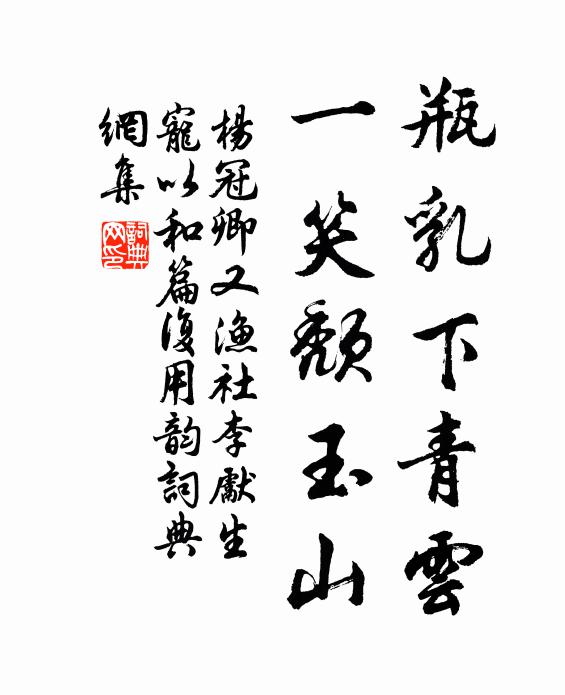 瓶乳下青雲
一笑頹玉山
楊冠卿又漁社李獻生
寵以和篇復用韵詞典
網集
詞典网印